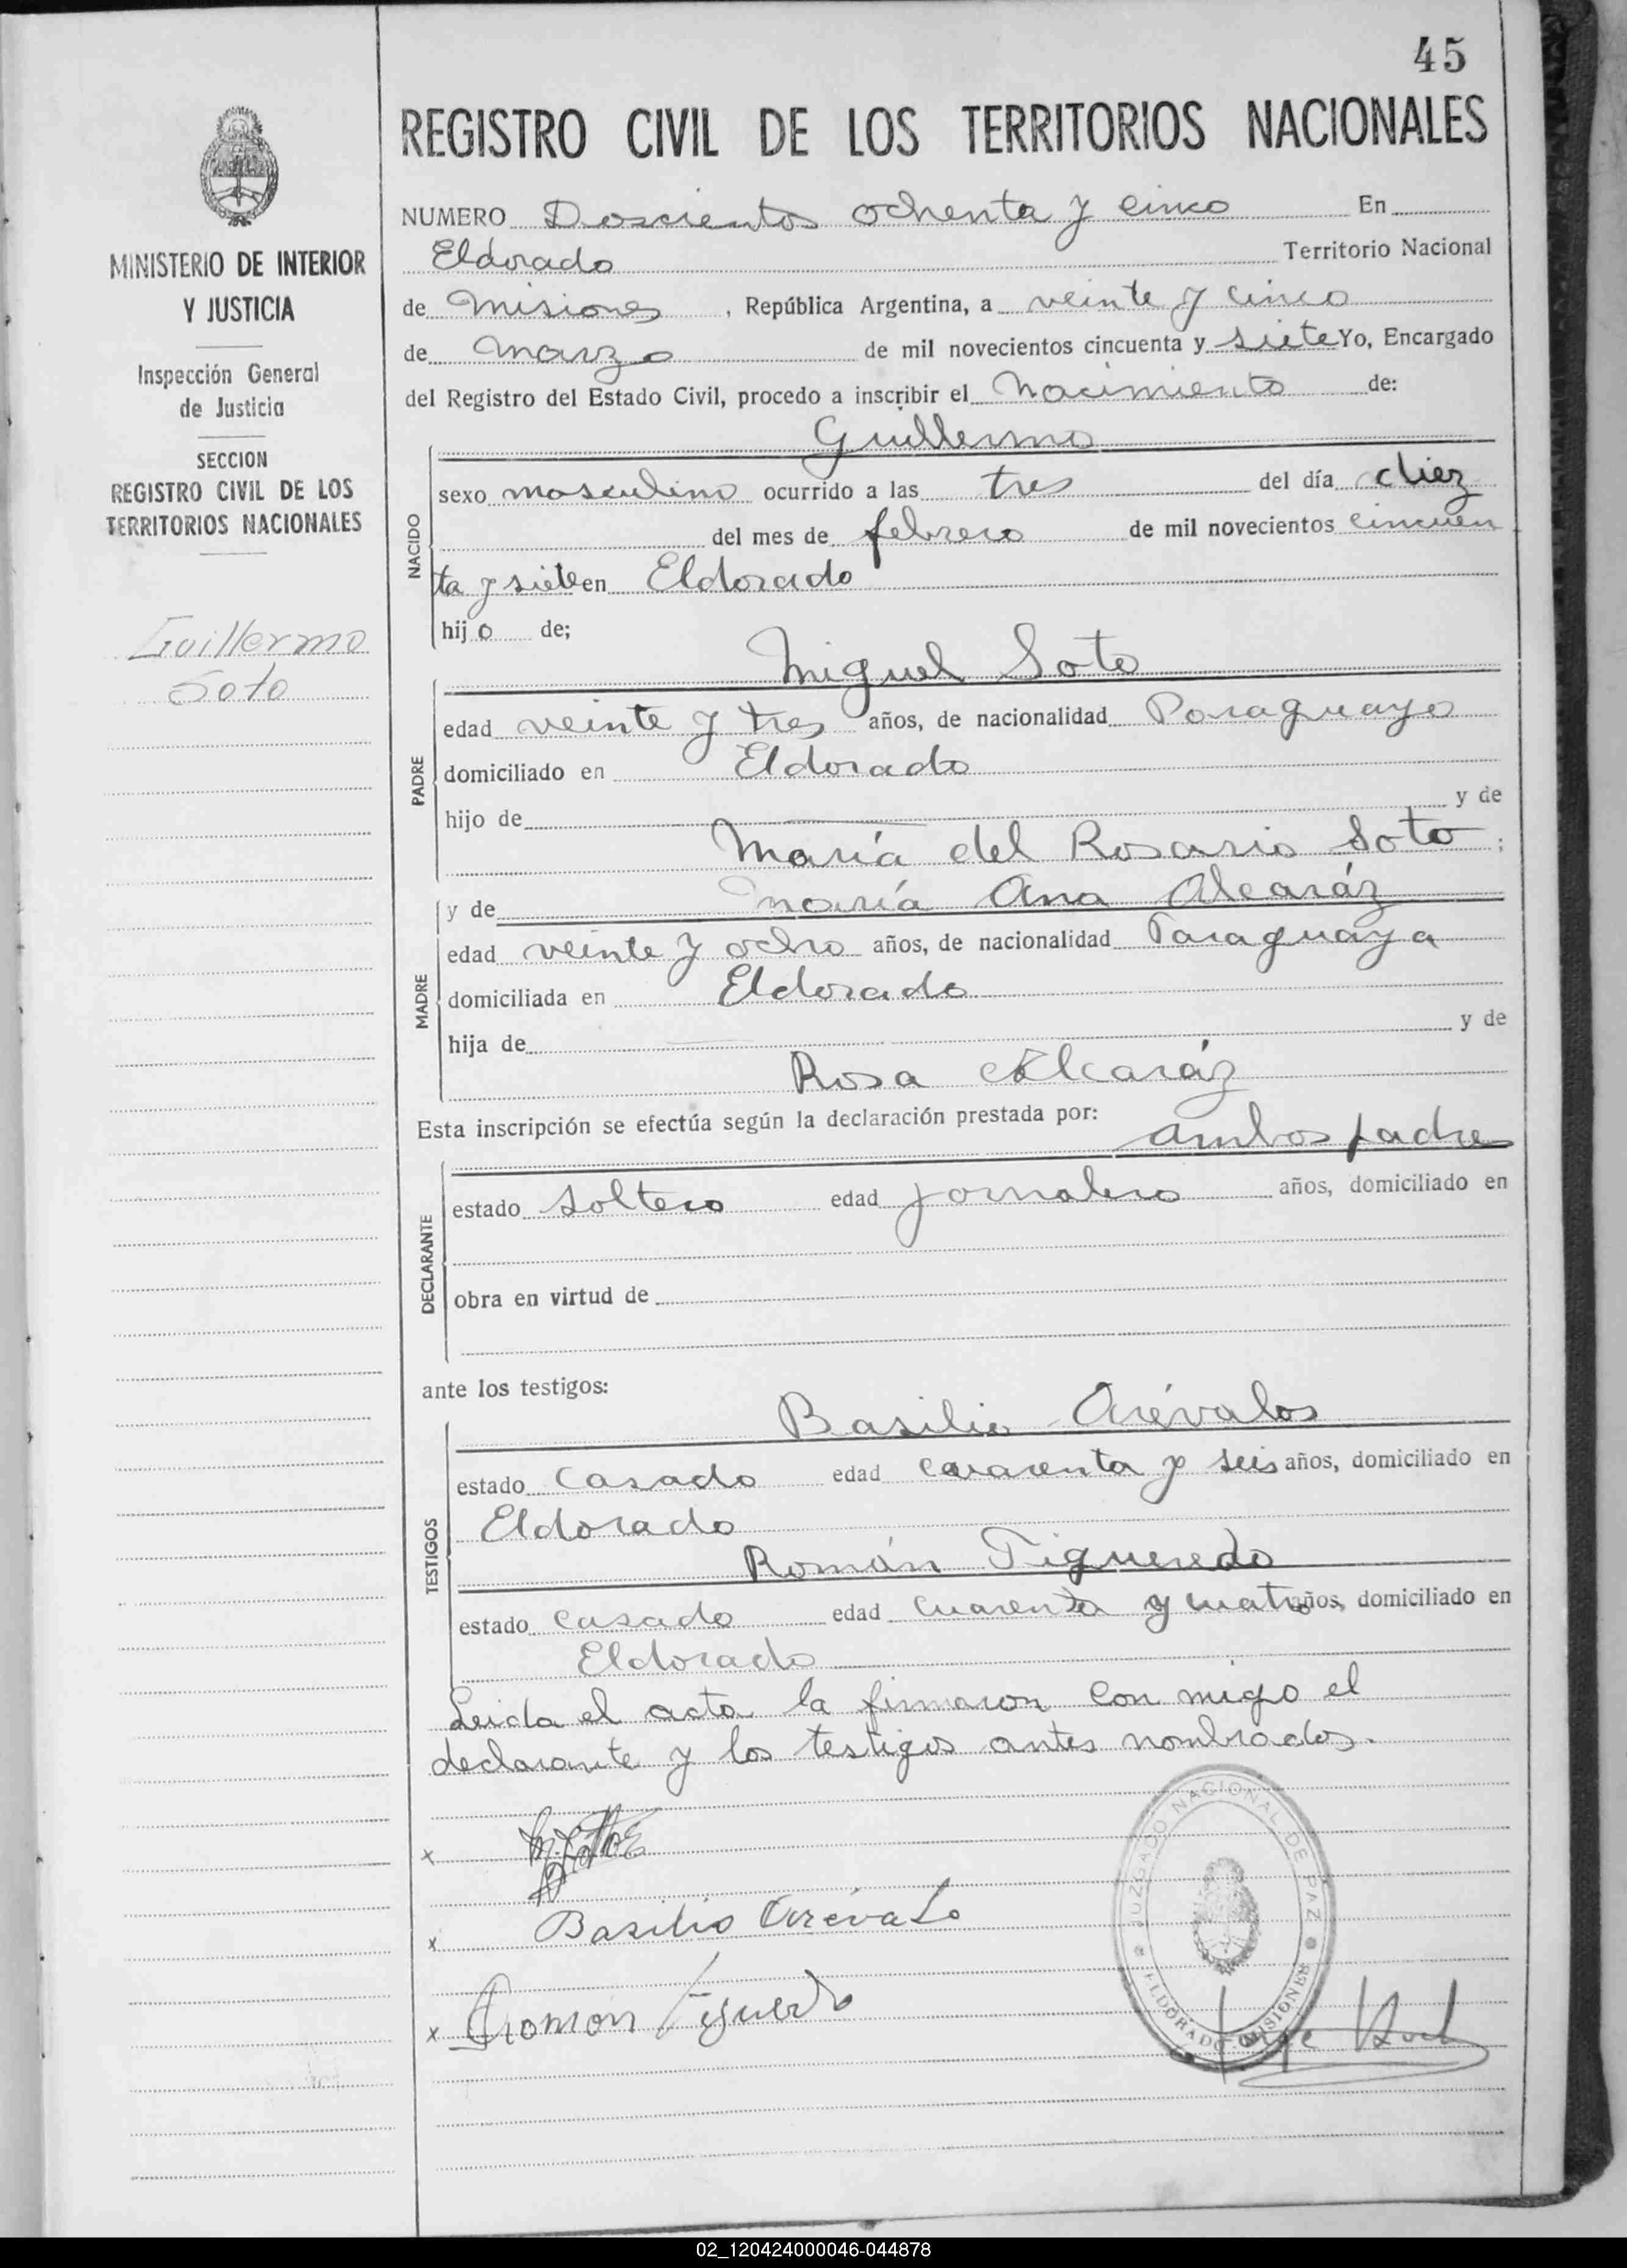 45
REGISTRO CIVIL DE LOS TERRITORIOS NACIONALES
MINISTERIO DE INTERIOR
Y JUSTICIA
Inspección General
de Justicia
SECCION
REGISTRO CIVIL DE LOS
TERRITORIOS NACIONALES
Guillermo
Soto
NUMERO Doscientos ochenta y cinco En
Eldorado Territorio Nacional
de Misiones, República Argentina, a veinte y cinco
de Marzo de mil novecientos cincuenta y siete Yo, Encargado
del Registro del Estado Civil, procedo a inscribir el Nacimiento de:
Guillermo
NACIDO
sexo masculino ocurrido a las tres del día diez
del mes de febrero de mil novecientos cincuen
ta y siete en Eldorado
hijo de;
Miguel Soto
PADRE
edad veinte y tres años, de nacionalidad Paraguayo
domiciliado en Eldorado
hijo de y de
María del Rosario Soto;
y de María Ana Alcaráz
MADRE
edad veinte y ocho años, de nacionalidad Paraguaya
domiciliada en Eldorado
hija de y de
Rosa Alcaráz
Esta inscripción se efectúa según la declaración prestada por: ambos padres
DECLARANTE
estado Soltero edad jornalero años, domiciliado en
obra en virtud de
ante los testigos:
Basilio Arévalos
TESTIGOS
estado Casado edad cuarenta y seis años, domiciliado en
Eldorado
Román Figueredo
estado casado edad cuarenta y cuatro años, domiciliado en
Eldorado
Leida el acta la firmaron con migo el
declarante y los testigos antes nombrados.
x
x Basilio Arévalo
x Román Figueredo
JUZGADO NACIONAL DE PAZ
ELDORADO - MISIONES
02_120424000046-044878